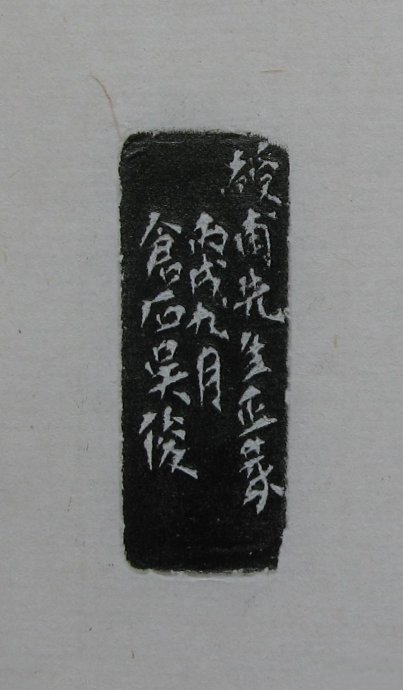 甫先生正篆
丙戌九月
倉石吳俊